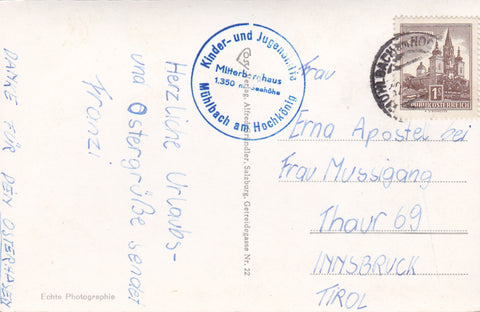 DANKE FÜR DEN OSTERHASEN
Herzliche Urlaubs-
und Ostergrüße sendet
Franzi
Kinder- und Jugend
Mitterberghaus
1.350 m Seehöhe
Mühlbach am Hochkönig
Verlag, Alfred Brändler, Salzburg, Getreidegasse Nr. 22
Frau
Erna Apostel bei
Frau Mussigang
Thaur 69
INNSBRUCK
TIROL
1S
REPUBLIK ÖSTERREICH
Echte Photographie